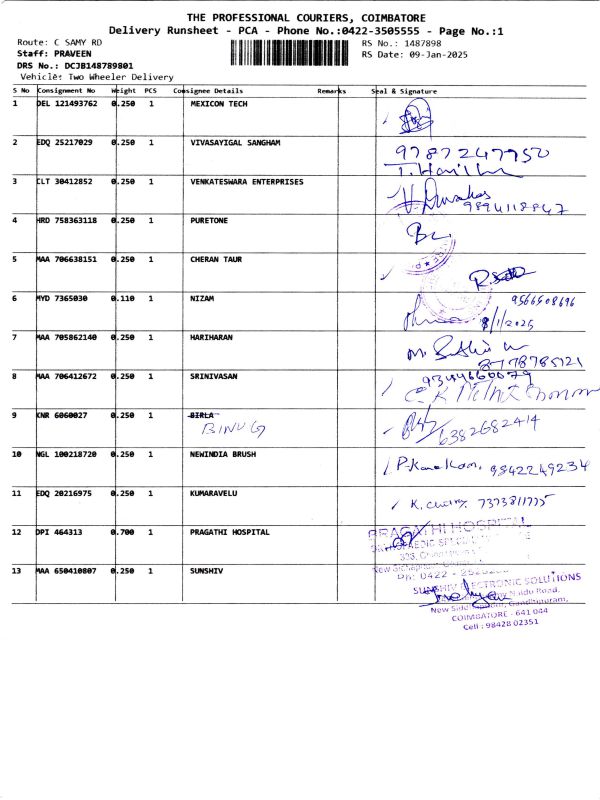 THE PROFESSIONAL COURIERS, COIMBATORE
Delivery Runsheet - PCA - Phone No.:0422-3505555 - Page No.:1
Route: C SAMY RD RS No.: 1487898
Staff: PRAVEEN RS Date: 09-Jan-2025
DRS No.: DCJB148789801
Vehicle: Two Wheeler Delivery
S No Consignment No Weight PCS Consignee Details Remarks Seal & Signature
1 DEL 121493762 0.250 1 MEXICON TECH
2 EDQ 25217029 0.250 1 VIVASAYIGAL SANGHAM
9787247750
3 CLT 30412852 0.250 1 VENKATESWARA ENTERPRISES
9894118847
4 HRD 758363118 0.250 1 PURETONE
5 MAA 706638151 0.250 1 CHERAN TAUR
6 MYD 7365030 0.110 1 NIZAM 9566508696
8/1/2025
7 MAA 705862140 0.250 1 HARIHARAN
8778785121
8 MAA 706412672 0.250 1 SRINIVASAN 9344660079
9 KNR 6060027 0.250 1 BIRLA
BINU G 6382682414
10 NGL 100218720 0.250 1 NEWINDIA BRUSH
9842249234
11 EDQ 20216975 0.250 1 KUMARAVELU
7373811775
12 DPI 464313 0.700 1 PRAGATHI HOSPITAL PRAGATHI HOSPITAL
Ph: 0422 -
13 MAA 650410807 0.250 1 SUNSHIV SUNSHIV ELECTRONIC SOLUTIONS
Naidu Road,
New Siddhapudur, Gandhipuram,
COIMBATORE - 641 044
Cell : 98428 02351